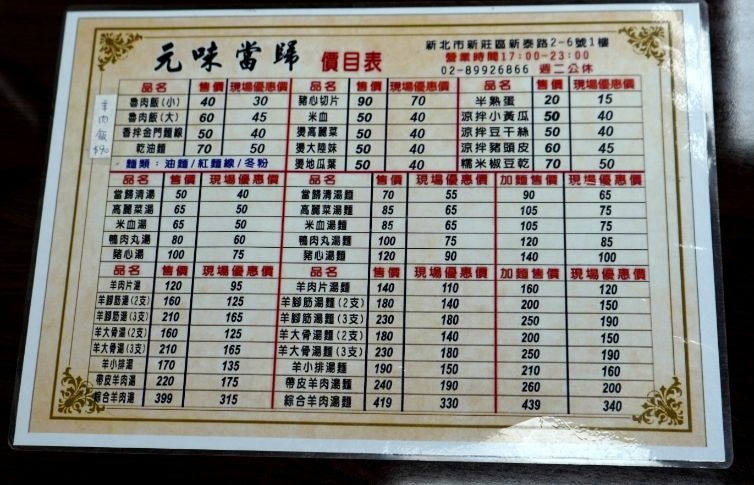 元味當歸 價目表
新北市新莊區新泰路2-6號1樓
營業時間17:00-23:00
02-89926866 週二公休
品名 售價 現場優惠價 品名 售價 現場優惠價 品名 售價 現場優惠價
魯肉飯(小) 40 30 豬心切片 90 70 半熟蛋 20 15
魯肉飯(大) 60 45 米血 50 40 涼拌小黃瓜 50 40
香拌金門麵線 50 40 燙高麗菜 50 40 涼拌豆干絲 50 40
乾油麵 70 50 燙大陸妹 50 40 涼拌豬頭皮 60 45
麵類：油麵/紅麵線/冬粉 燙地瓜葉 50 40 糯米椒豆乾 70 50
羊肉飯 $90
品名 售價 現場優惠價 品名 售價 現場優惠價 加麵售價 現場優惠價
當歸清湯 50 40 當歸清湯麵 70 55 90 65
高麗菜湯 65 50 高麗菜湯麵 85 65 105 75
米血湯 65 50 米血湯麵 85 65 105 75
鴨肉丸湯 80 60 鴨肉丸湯麵 100 75 120 85
豬心湯 100 75 豬心湯麵 120 90 140 100
品名 售價 現場優惠價 品名 售價 現場優惠價 加麵售價 現場優惠價
羊肉片湯 120 95 羊肉片湯麵 140 110 160 120
羊腳筋湯(2支) 160 125 羊腳筋湯麵(2支) 180 140 200 150
羊腳筋湯(3支) 210 165 羊腳筋湯麵(3支) 230 180 250 190
羊大骨湯(2支) 160 125 羊大骨湯麵(2支) 180 140 200 150
羊大骨湯(3支) 210 165 羊大骨湯麵(3支) 230 180 250 190
羊小排湯 170 135 羊小排湯麵 190 150 210 160
帶皮羊肉湯 220 175 帶皮羊肉湯麵 240 190 260 200
綜合羊肉湯 399 315 綜合羊肉湯麵 419 330 439 340